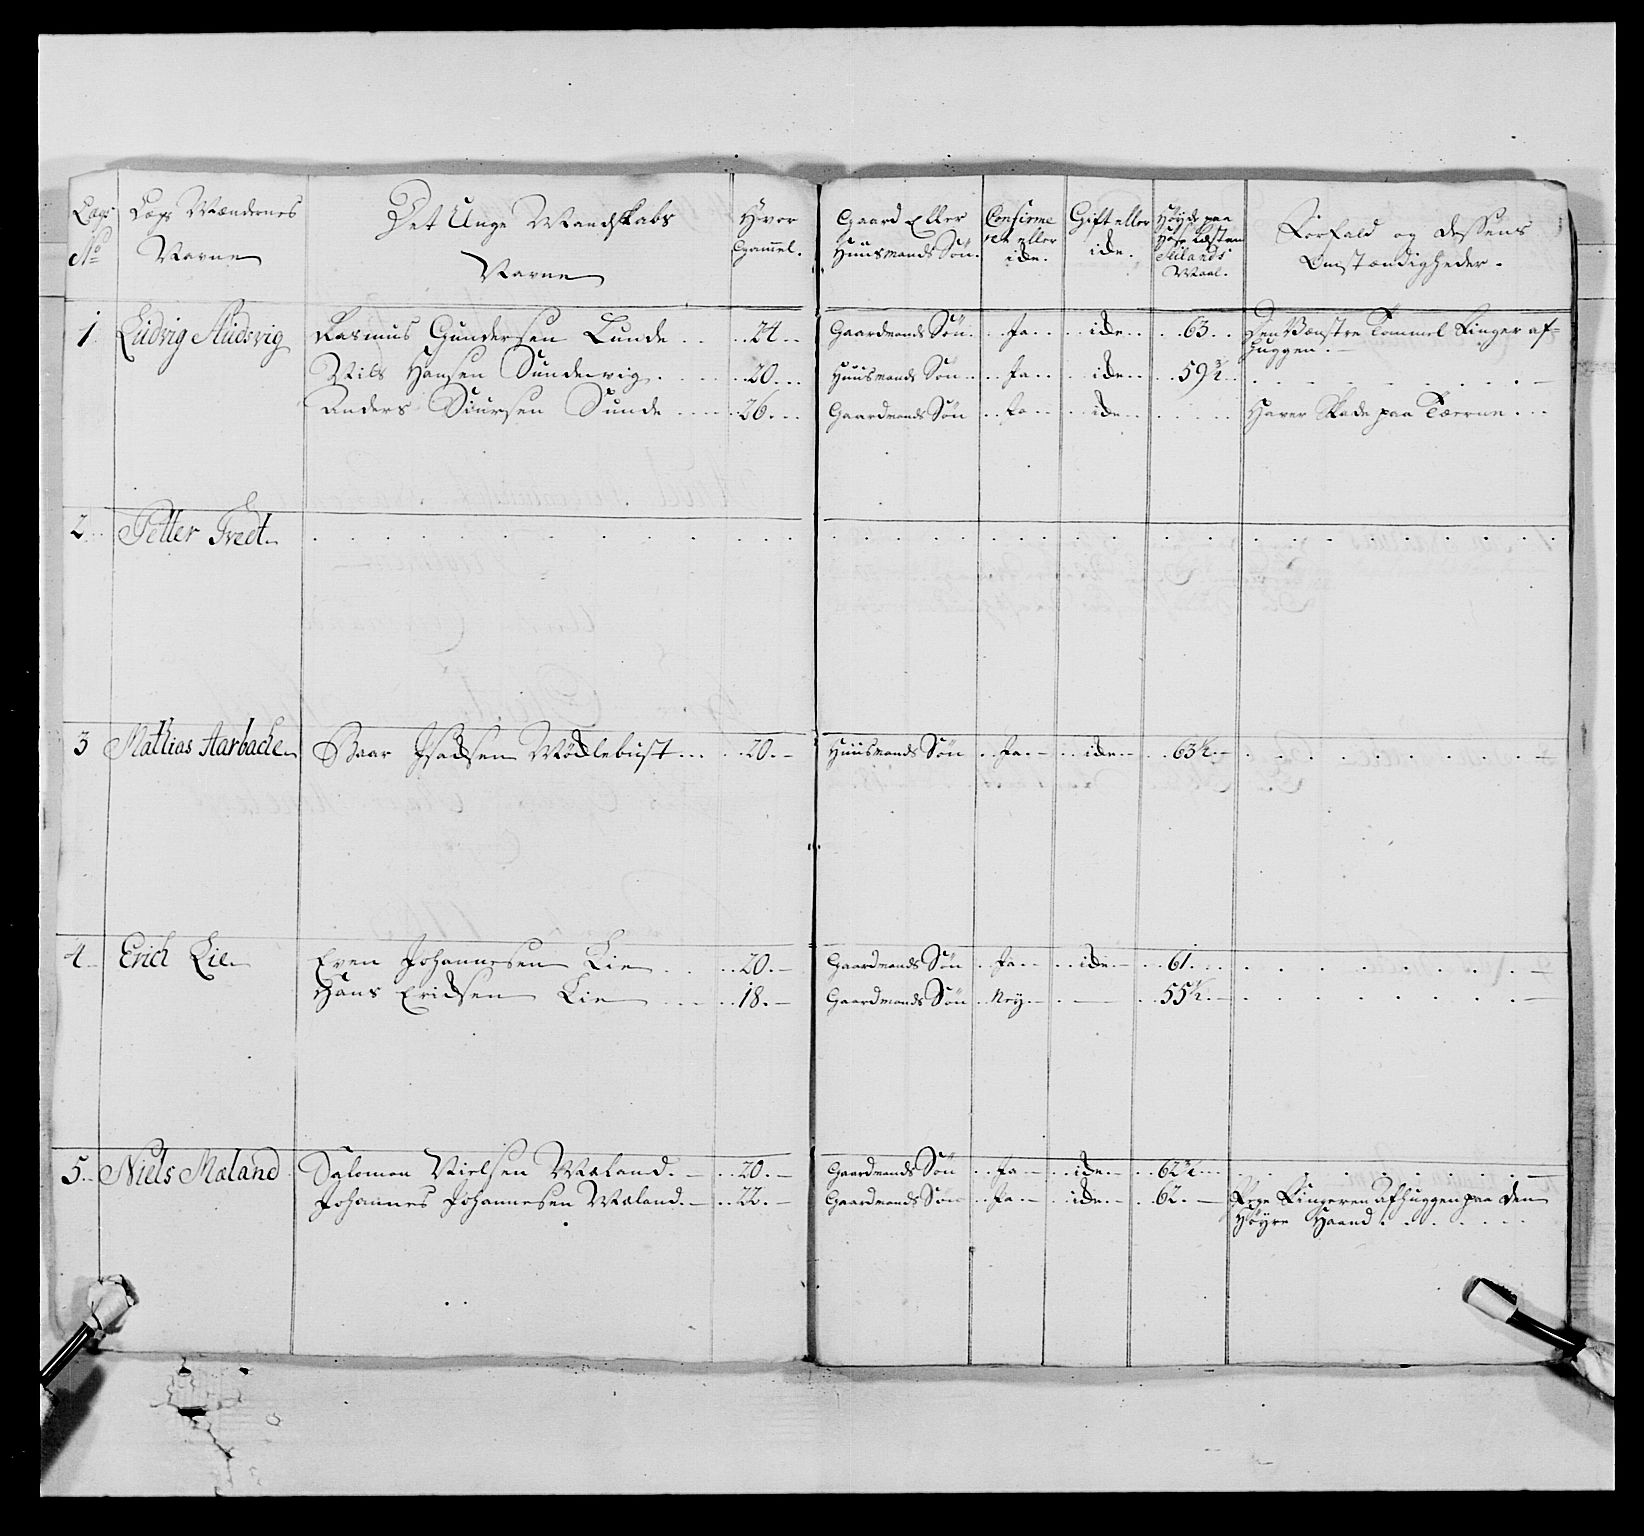 Lægs No
Lægs Mændernes Navne
Det Unge Mandskabs Navne
Hvor Gammel.
Gaard Eller Huusmands Søn.
Confirmeret eller ide.
Gift eller ide.
Høyde paa Hose Læsten Siælands Maal.
Forfald og dessens Omstændigheder.
1 Ludvig Rudsvig Rasmus Gundersen Lunde 24 Gaardmands Søn Ja ide 63 Den Vænstre Tommel Finger af=
huggen.
Nils Hansen Sundsvig 20 Huusmands Søn Ja ide 59 3/4
Anders Siursen Sunde 26 Gaardmands Søn Ja ide Haver Skade paa Tæerne
2 Petter Tvedt
3 Mathias Aarbache Baar Isacsen Mødlebust 20 Huusmands Søn Ja ide 63 1/2
4 Erich Lie Even Johannesen Lie 20 Gaardmands Søn Ja ide 61
Hans Ericsen Lie 18 Gaardmands Søn Ney 55 1/2
5 Niels Mæland Salomon Nielsen Mæland 20 Gaardmands Søn Ja ide 62 1/2
Johannes Johannesen Mæland 22 Gaardmands Søn Ja ide 62 Pege Fingeren afhuggen paa den
Høyre Haand